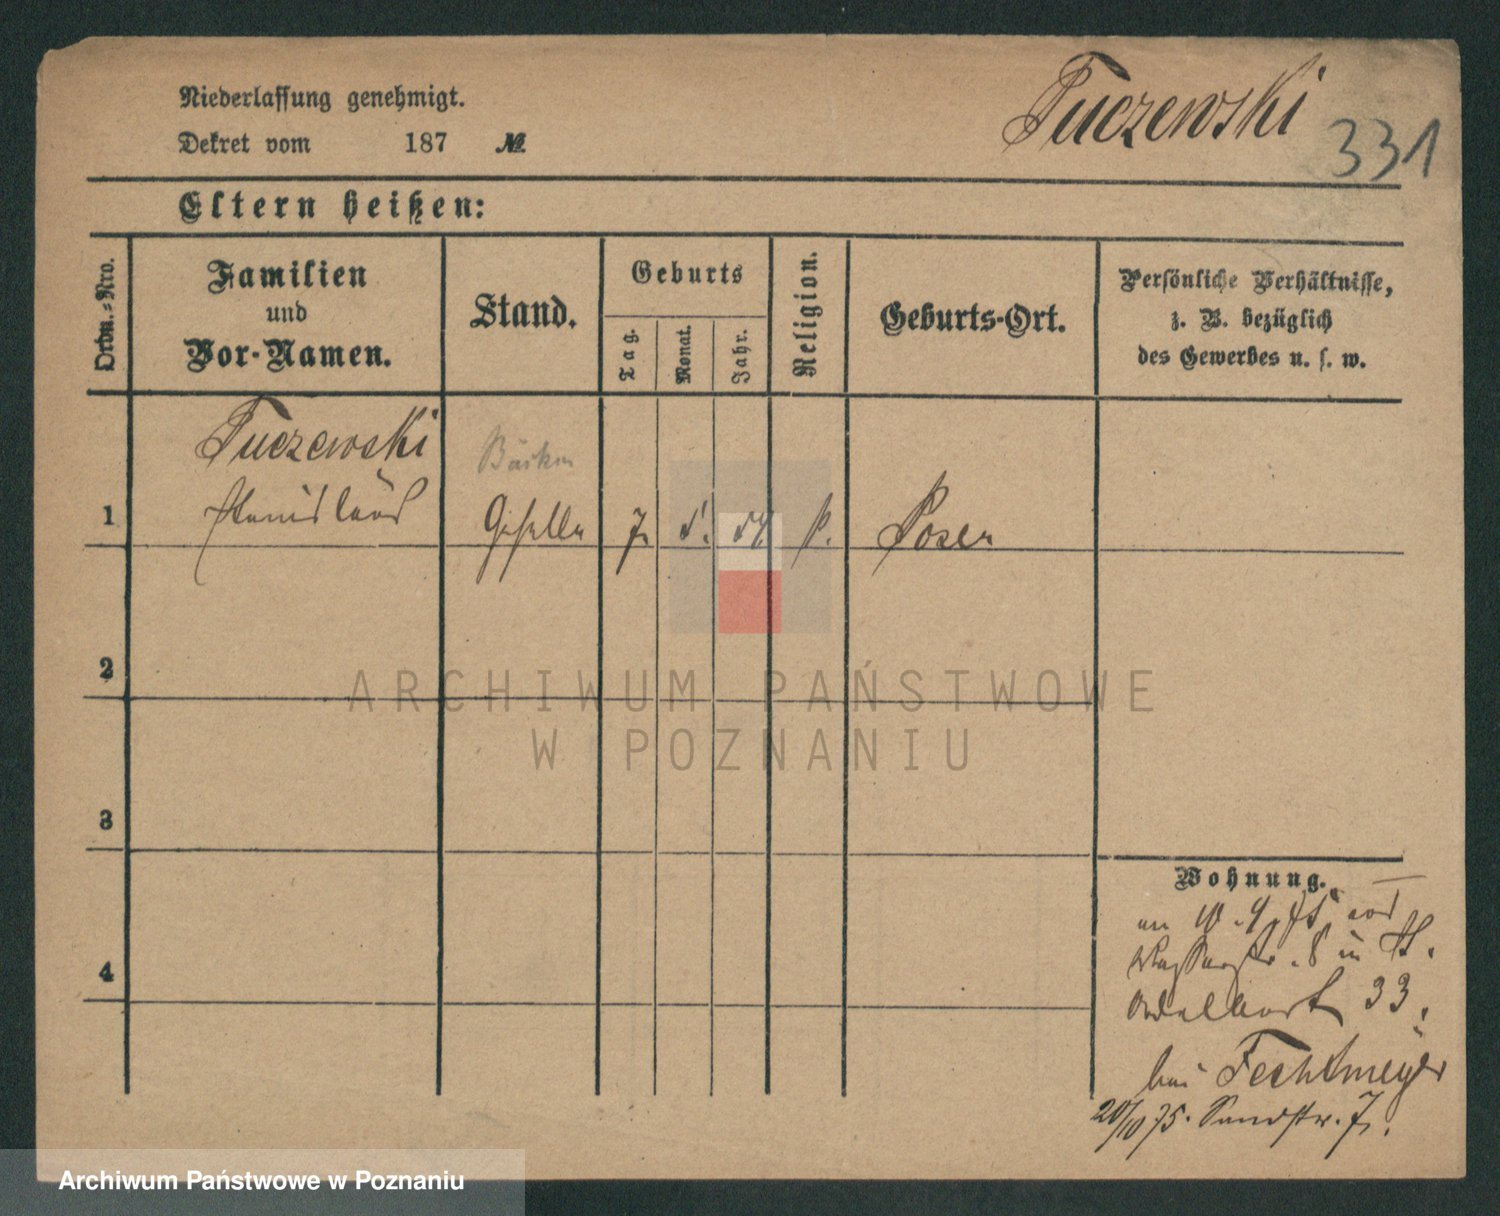 Niederlassung genehmigt.
Tuczewski
331
Dekret vom 187 №
Eltern heißen:
Ordn.-Nro.
Familien
und
Vor-Namen.
Stand.
Geburts
Tag.
Monat.
Jahr.
Religion.
Geburts-Ort.
Persönliche Verhältnisse,
z. B. bezüglich
des Gewerbes u. s. w.
Tuczewski
Bäcker
1
Stanislaus
Geselle
7.
5.
57
k.
Posen
2
ARCHIWUM PAŃSTWOWE
W POZNANIU
3
Wohnung.
75
Wasserstr. 8 in St.
4
Adalbert 33.
bei Fechtmeyer
20/10 75. Sandstr. 7.
Archiwum Państwowe w Poznaniu